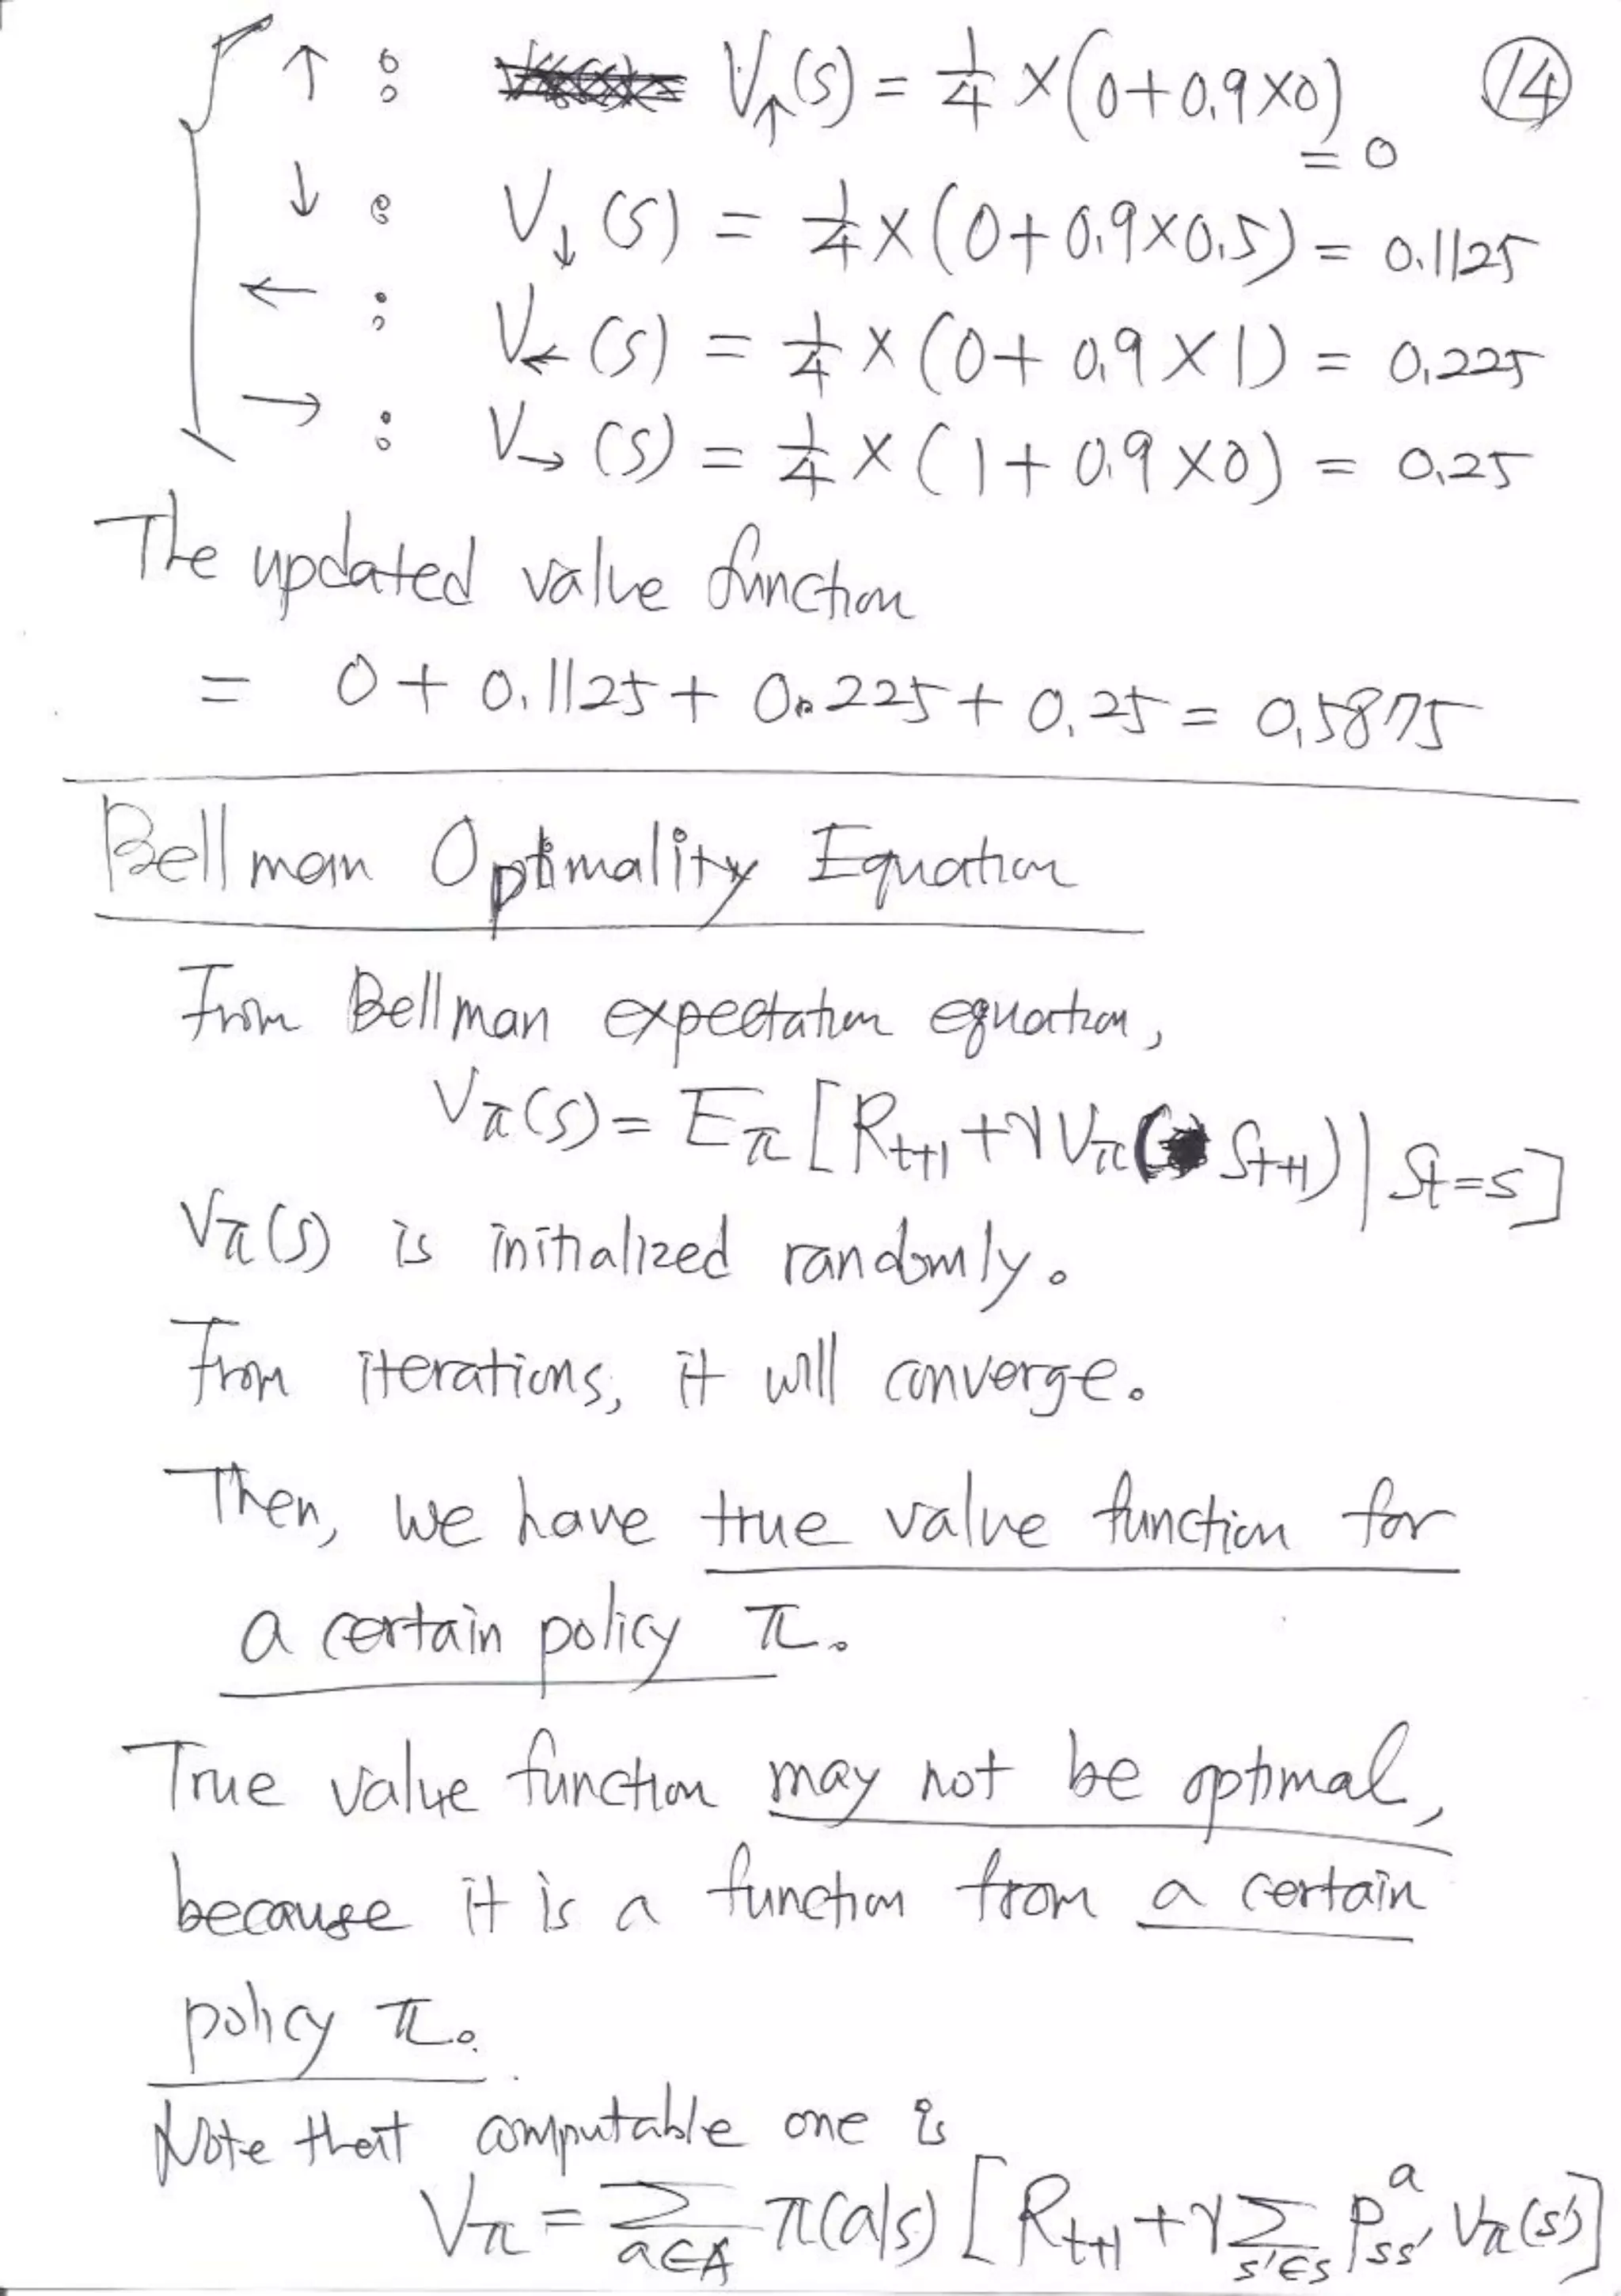 ↑ : V↑(s) = 1/4 × (0+0.9×0) ⑭
= 0
↓ : V↓(s) = 1/4 × (0+0.9×0.5) = 0.1125
← : V←(s) = 1/4 × (0+0.9×1) = 0.225
→ : V→(s) = 1/4 × (1+0.9×0) = 0.25
The updated value function
= 0 + 0.1125 + 0.225 + 0.25 = 0.5875
Bellman Optimality Equation
From Bellman expectation equation,
Vπ(s) = Eπ[Rt+1 + γVπ(St+1) | St=s]
Vπ(s) is initialized randomly.
From iterations, it will converge.
Then, we have true value function for
a certain policy π.
True value function may not be optimal,
because it is a function from a certain
policy π.
Note that computable one is
Vπ = Σa∈A π(a|s) [Rt+1 + γ Σs'∈s Pss'^a Vπ(s')]